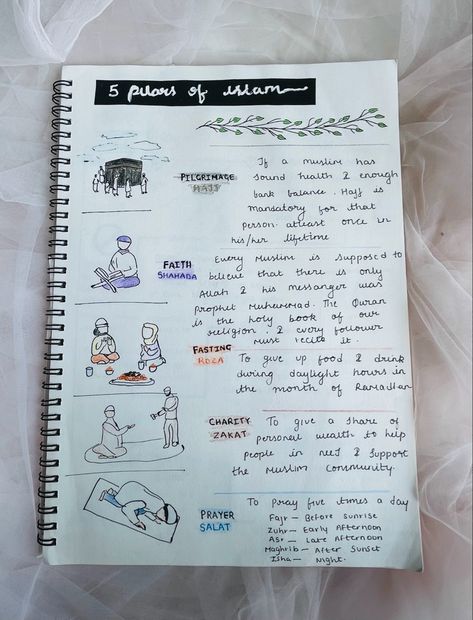 5 Pillars of Islam
PILGRIMAGE
HAJJ
If a muslim has
sound health & enough
bank balance. Hajj is
mandatory for that
person. atleast once in
his/her lifetime
FAITH
SHAHADA
Every Muslim is supposed to
believe that there is only
Allah & his messanger was
Prophet Muhammad. The Quran
is the holy book of our
religion. & every follower
must recite it.
FASTING
ROZA
To give up food & drink
during daylight hours in
the month of Ramadan
CHARITY
ZAKAT
To give a share of
personal wealth to help
people in need & support
the Muslim Community.
PRAYER
SALAT
To pray five times a day
Fajr — Before sunrise
Zuhr — Early Afternoon
Asr — Late Afternoon
Maghrib — After Sunset
Isha — Night.